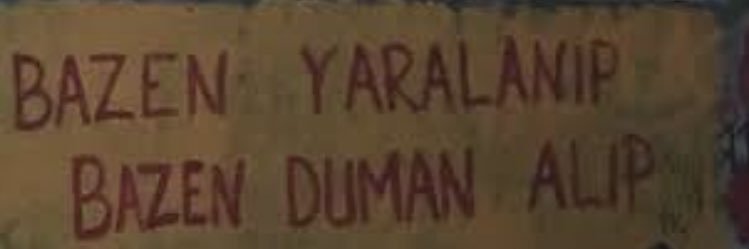 BAZEN YARALANIP
BAZEN DUMAN ALIP